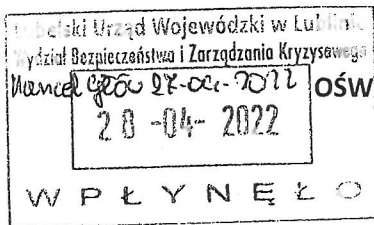 Lubelski Urząd Wojewódzki w Lublinie
Wydział Bezpieczeństwa i Zarządzania Kryzysowego
27-04-2022 OŚW
28 -04- 2022
WPŁYNĘŁO